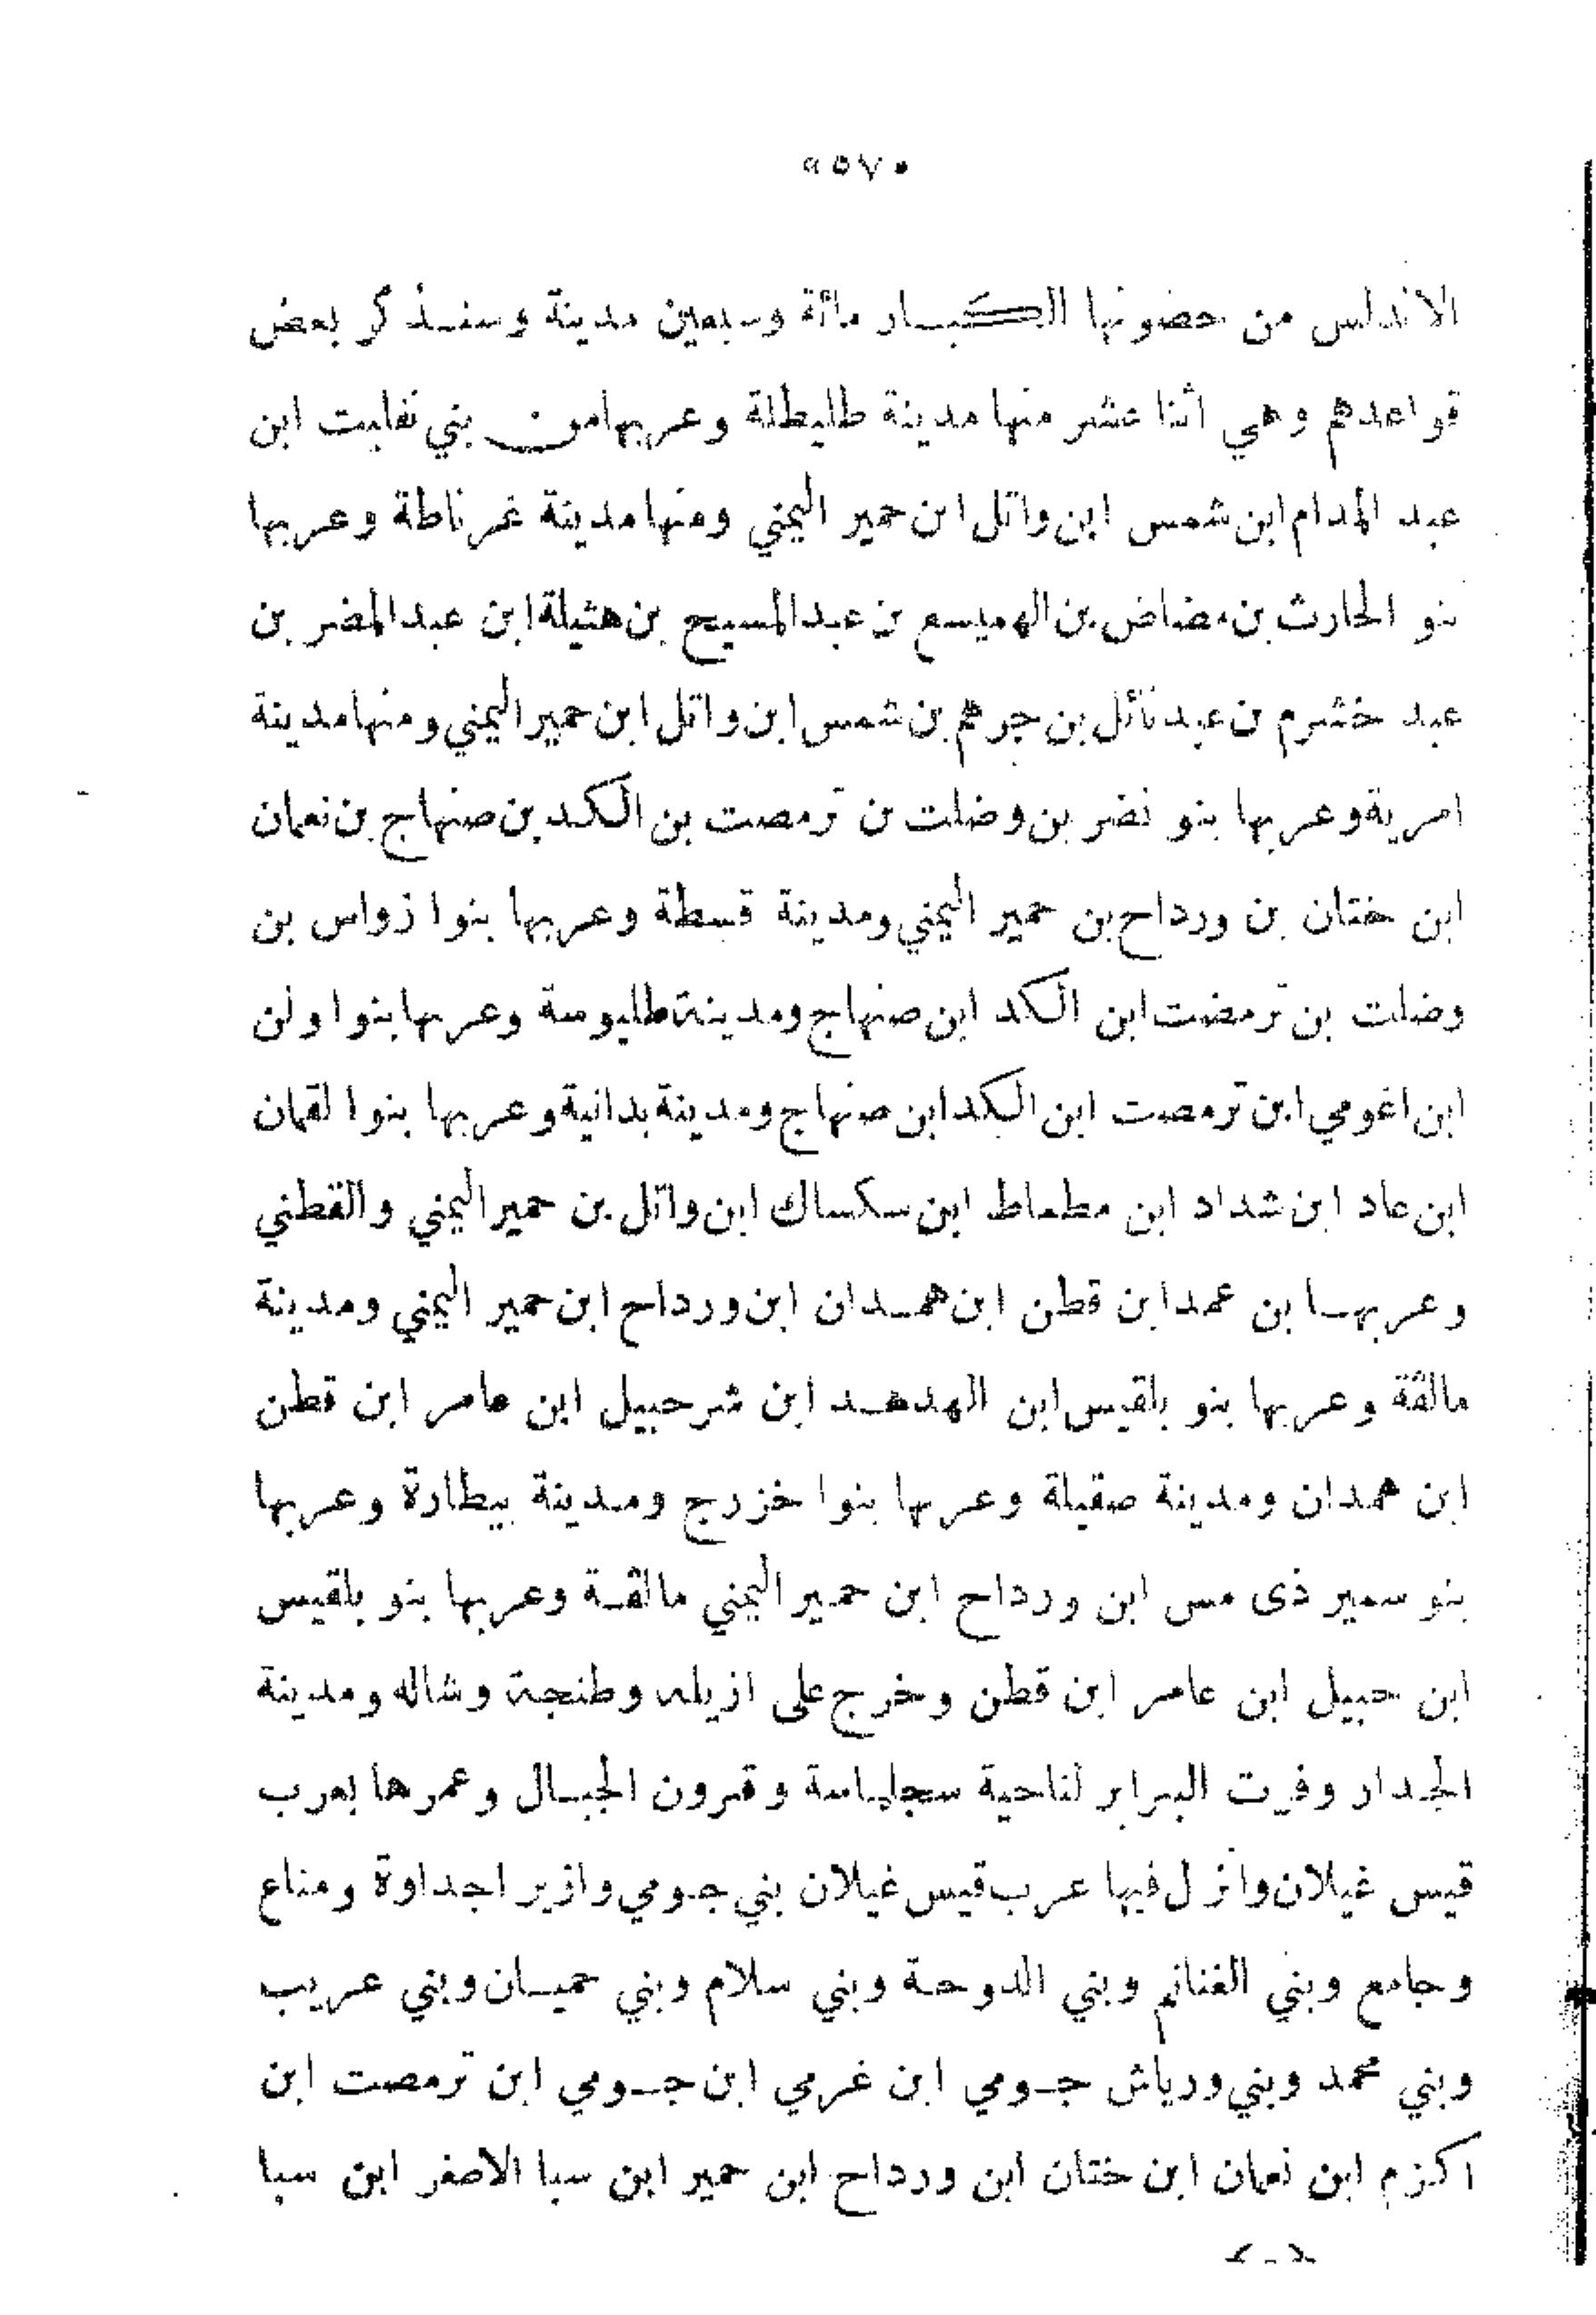 ٩٥٧٠
الاندلس من حضونها الكبار مائة وسبعين مدينة وسنذكر بعض
قواعدهم وهي اثنا عشر منها مدينة طليطلة وعربها من بني نفليت ابن
عبد المدام ابن شمس ابن واتل ابن حمير اليمني ومنها مدينة غرناطة وعربها
بنو الحارث بن مضاض بن الهميسع بن عبد المسيح بن هثيلة ابن عبد المضر بن
عبد خشرم بن عبد نائل بن جرهم بن شمس ابن واتل ابن حمير اليمني ومنها مدينة
امرية وعربها بنو نضر بن وضلت بن ترمصت بن الكد بن صنهاج بن نعمان
ابن ختان بن ورداح بن حمير اليمني ومدينة قسطة وعربها بنوا زواس بن
وضلت بن ترمضت ابن الكد ابن صنهاج ومدينة طليوسة وعربها بنوا ولن
ابن اغومي ابن ترمصت ابن الكد ابن صنهاج ومدينة بدانية وعربها بنوا لقمان
ابن عاد ابن شداد ابن مطماط ابن سكساك ابن واتل بن حمير اليمني والقطني
وعربها بن عمد ابن قطن ابن همدان ابن ورداح ابن حمير اليمني ومدينة
مالقة وعربها بنو بلقيس ابن الهدهد ابن شرحبيل ابن عامر ابن قطن
ابن همدان ومدينة صقيلة وعربها بنوا خزرج ومدينة بيطارة وعربها
بنو سمير ذى مس ابن ورداح ابن حمير اليمني مالقة وعربها بنو بلقيس
ابن حبيل ابن عامر ابن قطن وخرج على ازيله وطنجة وشاله ومدينة
الجدار وفرت البرابر لناحية سجلماسة وقرون الجبال وعمرها بعرب
قيس غيلان وانزل فيها عرب قيس غيلان بني جومي وازير اجداوة ومناع
وجامع وبني الغنانم وبني الدوحة وبني سلام وبني حميان وبني عريب
وبني محمد وبني ورياش جومي ابن غرمي ابن جومي ابن ترمصت ابن
اكزم ابن نعمان ابن ختان ابن ورداح ابن حمير ابن سبا الاصغر ابن سبا